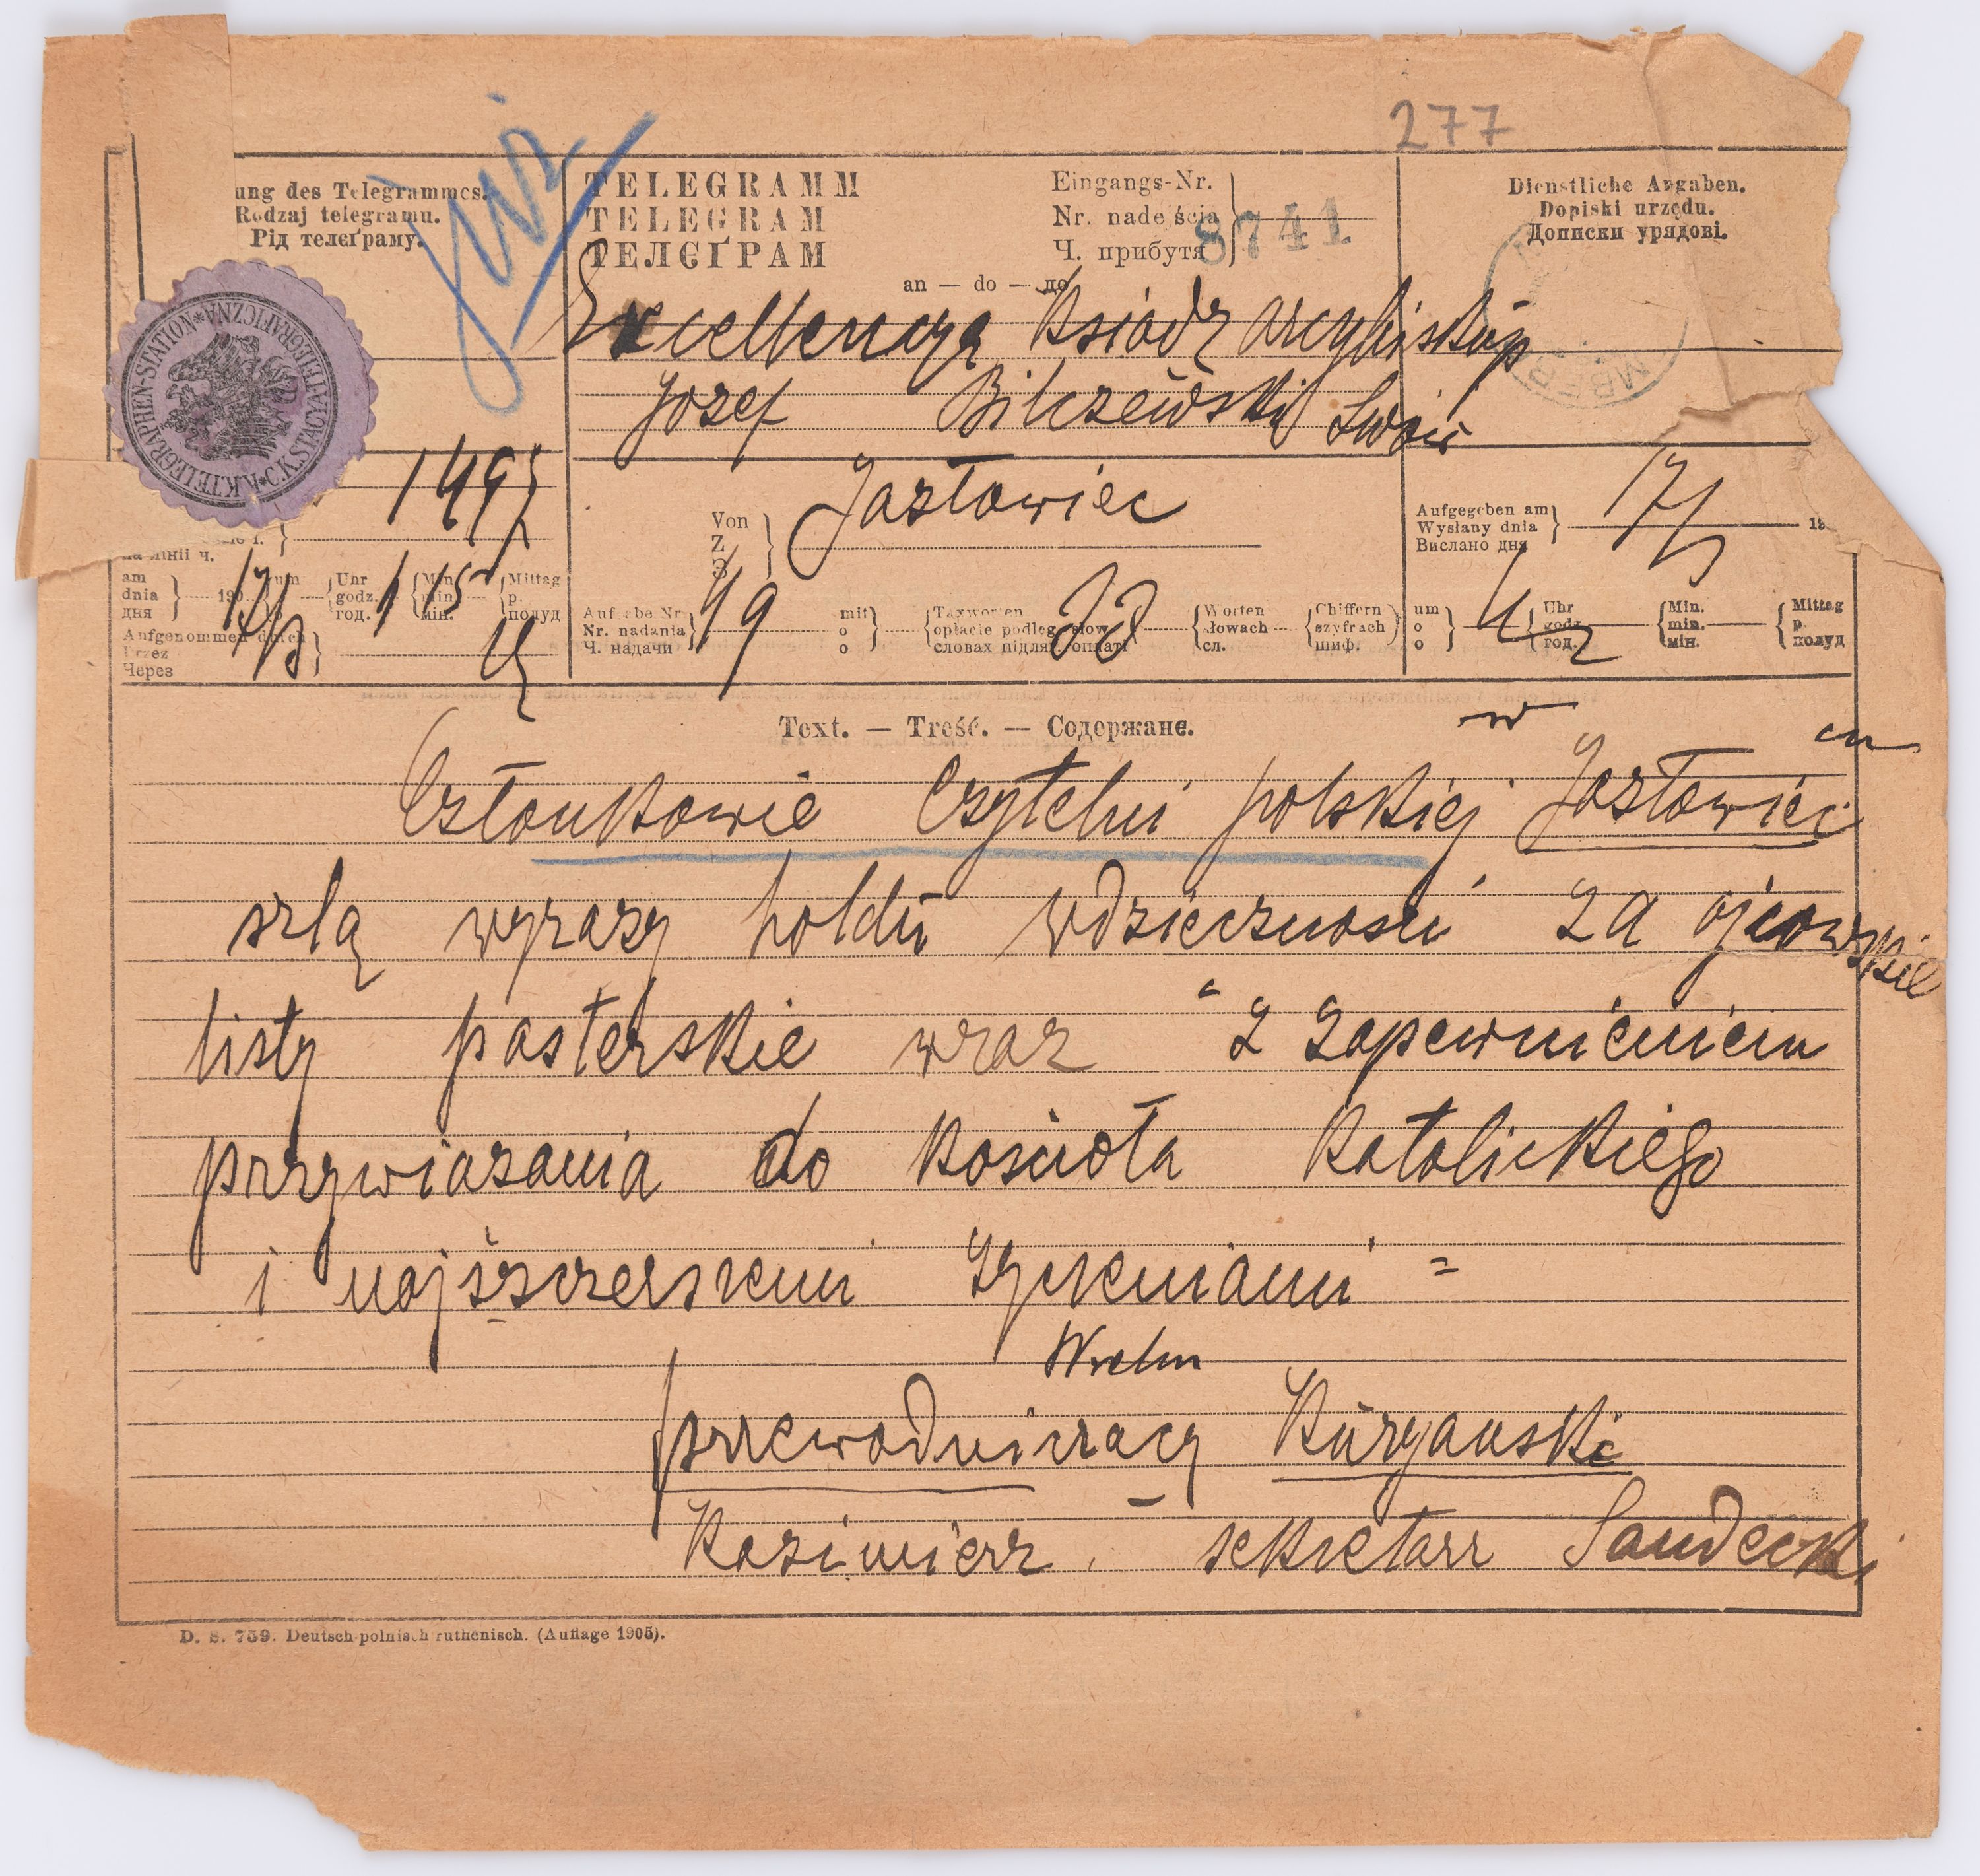 277
ung des Telegrammes.
Rodzaj telegramu.
Рід телєґраму.
TELEGRAMM
TELEGRAM
ТЕЛЄҐРАМ
Eingangs-Nr.
Nr. nadejścia
Ч. прибутя
8741
Dienstliche Angaben.
Dopiski urzędu.
Дописки урядові.
an — do — до
Excellencya Ksiadz arcybiskup
Jozef Bilczewski Lwow
K.K. TELEGRAPHEN-STATION * C.K. STACYA TELEGRAFICZNA *
Von
Z
З
Jazłowiec
Aufgegeben am
Wysłany dnia
Вислано дня
17/3
19
лінії ч.
am
dnia
дня
190
17/3
um
Uhr
godz.
год.
1
Min.
min.
мін.
15
Mittag
p.
полуд
Aufgenommen durch
Przez
Через
Aufgabe Nr.
Nr. nadania
Ч. надачи
19
mit
o
o
Taxworten
opłacie podleg. słow
словах підляг. оплаті
Worten
słowach
сл.
Chiffern
szyfrach
шиф.
um
o
o
Uhr
godz.
год.
Min.
min.
мін.
Mittag
p.
полуд
Text. — Treść. — Содержанє.
w
Członkowie Czytelni polskiej Jazłowiec
szlą wyrazy holdu wdziecznosci za ojcowskie
listy pasterskie wraz z zapewnieniem
przywiazania do Koscioła Katolickiego
i najszczerszemi zyczeniami =
przewodniczacy Kurzanski
Kazimierz sekretarz Sandecki
D. S. 759. Deutsch-polnisch ruthenisch. (Auflage 1905).